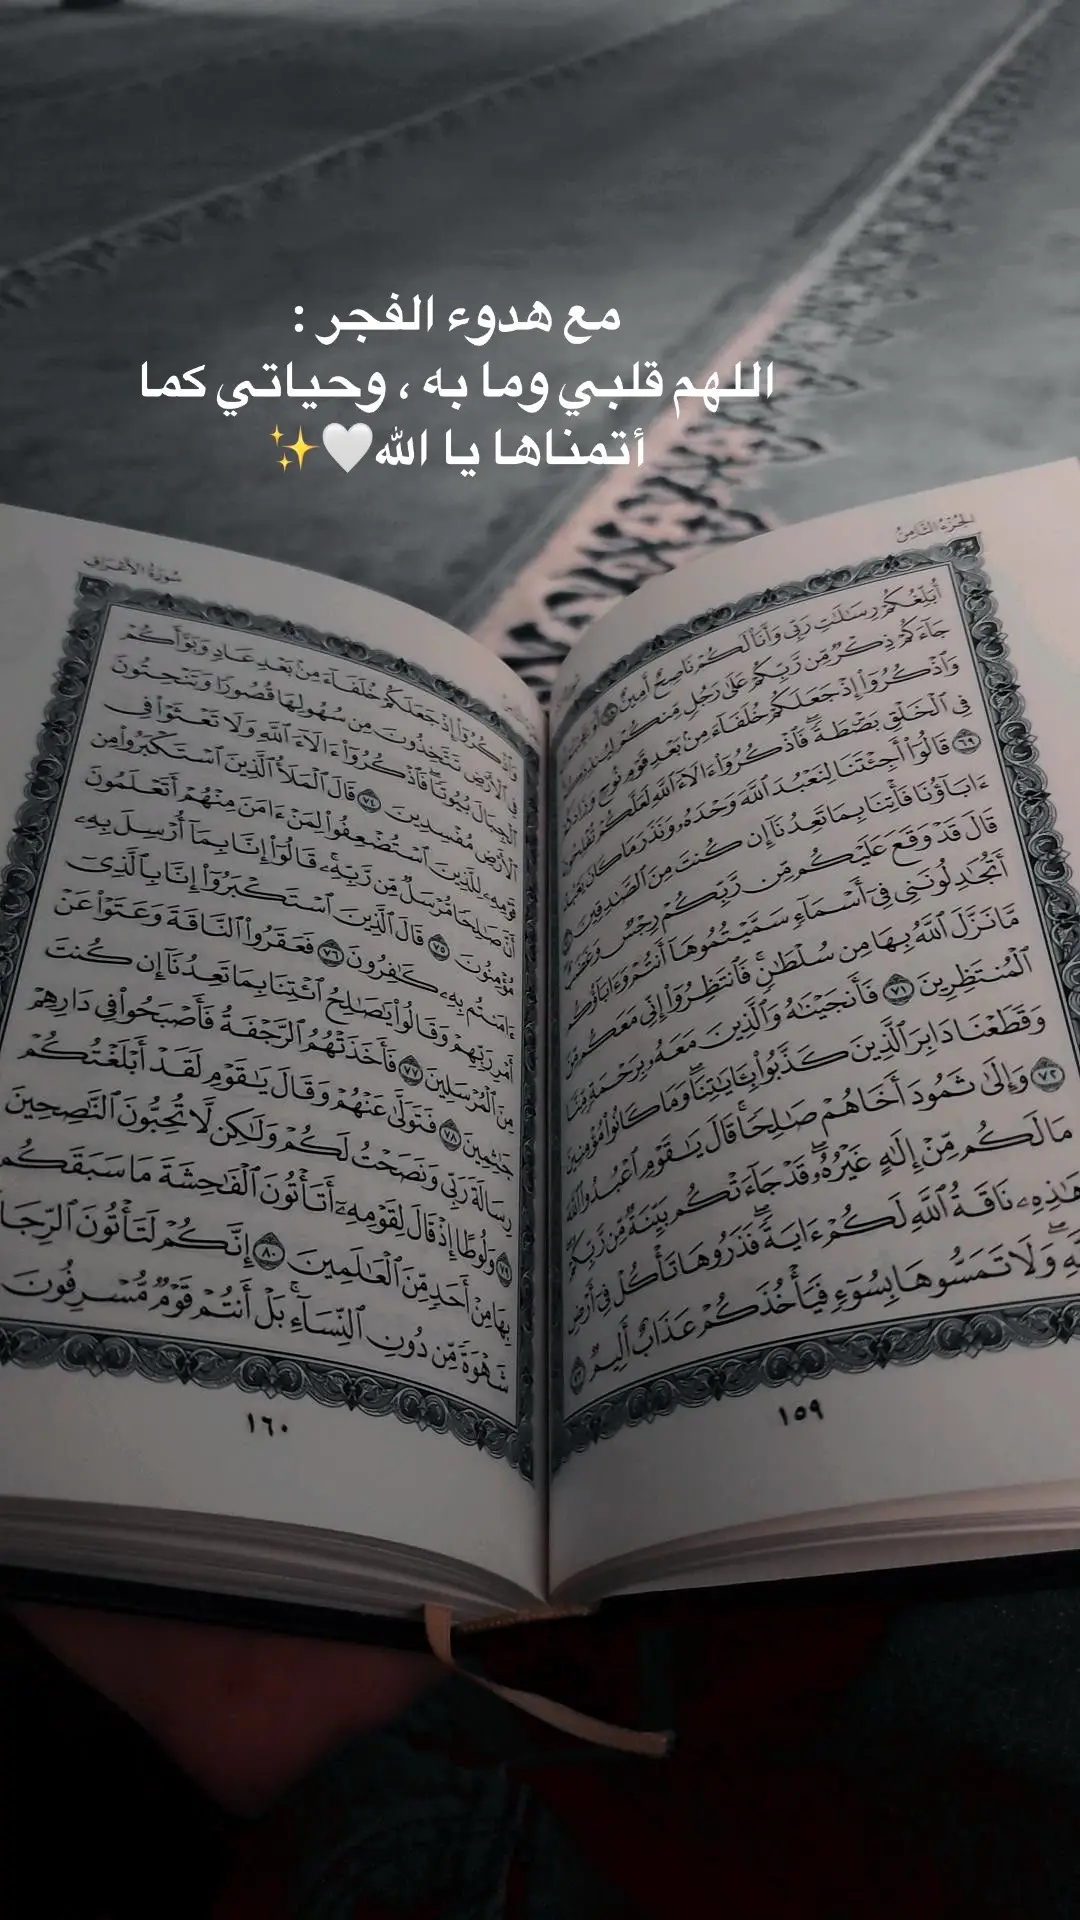 مع هدوء الفجر :
اللهم قلبي وما به ، وحياتي كما
أتمناها يا الله🤍✨
الجزء الثامن
أُبَلِّغُكُمْ رِسَٰلَٰتِ رَبِّى وَأَنَا۠ لَكُمْ نَاصِحٌ أَمِينٌ
جَآءَكُمْ ذِكْرٌ مِّن رَّبِّكُمْ عَلَىٰ رَجُلٍ مِّنكُمْ لِيُنذِرَكُمْ
وَٱذْكُرُوٓا۟ إِذْ جَعَلَكُمْ خُلَفَآءَ مِنۢ بَعْدِ قَوْمِ نُوحٍ وَزَادَكُمْ
فِى ٱلْخَلْقِ بَصْۜطَةً ۖ فَٱذْكُرُوٓا۟ ءَالَآءَ ٱللَّهِ لَعَلَّكُمْ تُفْلِحُونَ
٦٩ قَالُوٓا۟ أَجِئْتَنَا لِنَعْبُدَ ٱللَّهَ وَحْدَهُۥ وَنَذَرَ مَا كَانَ يَعْبُدُ
ءَابَآؤُنَا فَأْتِنَا بِمَا تَعِدُنَآ إِن كُنتَ مِنَ ٱلصَّٰدِقِينَ
قَالَ قَدْ وَقَعَ عَلَيْكُم مِّن رَّبِّكُمْ رِجْسٌ وَغَضَبٌ
أَتُجَٰدِلُونَنِى فِىٓ أَسْمَآءٍ سَمَّيْتُمُوهَآ أَنتُمْ وَءَابَآؤُكُم
مَّا نَزَّلَ ٱللَّهُ بِهَا مِن سُلْطَٰنٍ ۚ فَٱنتَظِرُوٓا۟ إِنِّى مَعَكُم مِّنَ
ٱلْمُنتَظِرِينَ ٧١ فَأَنجَيْنَٰهُ وَٱلَّذِينَ مَعَهُۥ بِرَحْمَةٍ مِّنَّا
وَقَطَعْنَا دَابِرَ ٱلَّذِينَ كَذَّبُوا۟ بِـَٔايَٰتِنَا ۖ وَمَا كَانُوا۟ مُؤْمِنِينَ
٧٢ وَإِلَىٰ ثَمُودَ أَخَاهُمْ صَٰلِحًا ۗ قَالَ يَٰقَوْمِ ٱعْبُدُوا۟ ٱللَّهَ
مَا لَكُم مِّنْ إِلَٰهٍ غَيْرُهُۥ ۖ قَدْ جَآءَتْكُم بَيِّنَةٌ مِّن رَّبِّكُمْ
هَٰذِهِۦ نَاقَةُ ٱللَّهِ لَكُمْ ءَايَةً ۖ فَذَرُوهَا تَأْكُلْ فِىٓ أَرْضِ
وَلَا تَمَسُّوهَا بِسُوٓءٍ فَيَأْخُذَكُمْ عَذَابٌ أَلِيمٌ
١٥٩
سورة الأعراف
وَٱذْكُرُوٓا۟ إِذْ جَعَلَكُمْ خُلَفَآءَ مِنۢ بَعْدِ عَادٍ وَبَوَّأَكُمْ
فِى ٱلْأَرْضِ تَتَّخِذُونَ مِن سُهُولِهَا قُصُورًا وَتَنْحِتُونَ
ٱلْجِبَالَ بُيُوتًا ۖ فَٱذْكُرُوٓا۟ ءَالَآءَ ٱللَّهِ وَلَا تَعْثَوْا۟ فِى
ٱلْأَرْضِ مُفْسِدِينَ ٧٤ قَالَ ٱلْمَلَأُ ٱلَّذِينَ ٱسْتَكْبَرُوا۟ مِن
قَوْمِهِۦ لِلَّذِينَ ٱسْتُضْعِفُوا۟ لِمَنْ ءَامَنَ مِنْهُمْ أَتَعْلَمُونَ
أَنَّ صَٰلِحًا مُّرْسَلٌ مِّن رَّبِّهِۦ ۚ قَالُوٓا۟ إِنَّا بِمَآ أُرْسِلَ بِهِۦ
مُؤْمِنُونَ ٧٥ قَالَ ٱلَّذِينَ ٱسْتَكْبَرُوٓا۟ إِنَّا بِٱلَّذِىٓ
ءَامَنتُم بِهِۦ كَٰفِرُونَ ٧٦ فَعَقَرُوا۟ ٱلنَّاقَةَ وَعَتَوْا۟ عَنْ
أَمْرِ رَبِّهِمْ وَقَالُوا۟ يَٰصَٰلِحُ ٱئْتِنَا بِمَا تَعِدُنَآ إِن كُنتَ
مِنَ ٱلْمُرْسَلِينَ ٧٧ فَأَخَذَتْهُمُ ٱلرَّجْفَةُ فَأَصْبَحُوا۟ فِى دَارِهِمْ
جَٰثِمِينَ ٧٨ فَتَوَلَّىٰ عَنْهُمْ وَقَالَ يَٰقَوْمِ لَقَدْ أَبْلَغْتُكُمْ
رِسَالَةَ رَبِّى وَنَصَحْتُ لَكُمْ وَلَٰكِن لَّا تُحِبُّونَ ٱلنَّٰصِحِينَ
٧٩ وَلُوطًا إِذْ قَالَ لِقَوْمِهِۦٓ أَتَأْتُونَ ٱلْفَٰحِشَةَ مَا سَبَقَكُم
بِهَا مِنْ أَحَدٍ مِّنَ ٱلْعَٰلَمِينَ ٨٠ إِنَّكُمْ لَتَأْتُونَ ٱلرِّجَا
شَهْوَةً مِّن دُونِ ٱلنِّسَآءِ ۚ بَلْ أَنتُمْ قَوْمٌ مُّسْرِفُونَ
١٦٠